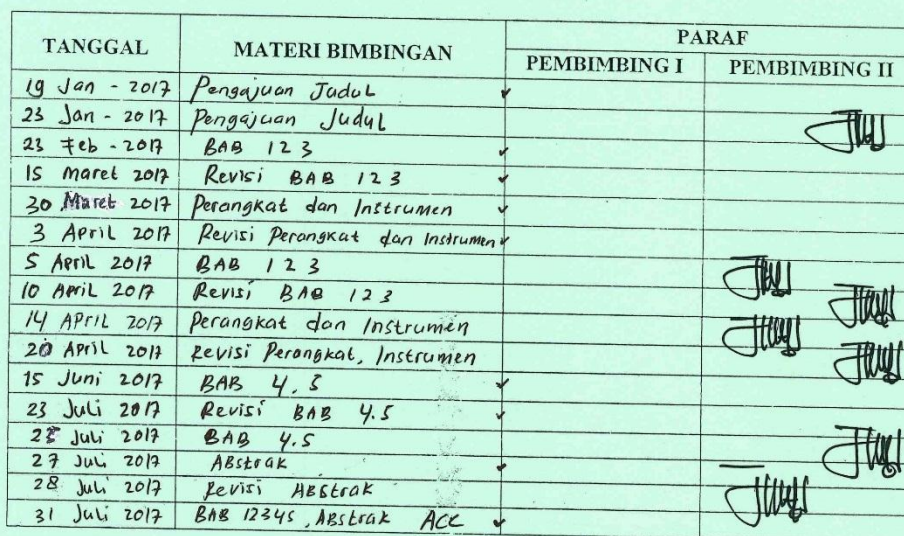 TANGGAL MATERI BIMBINGAN PARAF
PEMBIMBING I PEMBIMBING II
19 Jan - 2017 Pengajuan Judul
23 Jan - 2017 Pengajuan Judul
23 Feb - 2017 BAB 1 2 3
15 maret 2017 Revisi BAB 1 2 3
30 Maret 2017 Perangkat dan Instrumen
3 April 2017 Revisi Perangkat dan Instrumen
5 April 2017 BAB 1 2 3
10 April 2017 Revisi BAB 1 2 3
14 April 2017 Perangkat dan Instrumen
20 April 2017 Revisi Perangkat, Instrumen
15 Juni 2017 BAB 4.5
23 Juli 2017 Revisi BAB 4.5
Juli 2017 BAB 4.5
27 Juli 2017 Abstrak
28 Juli 2017 Revisi Abstrak
31 Juli 2017 BAB 12345, Abstrak ACC